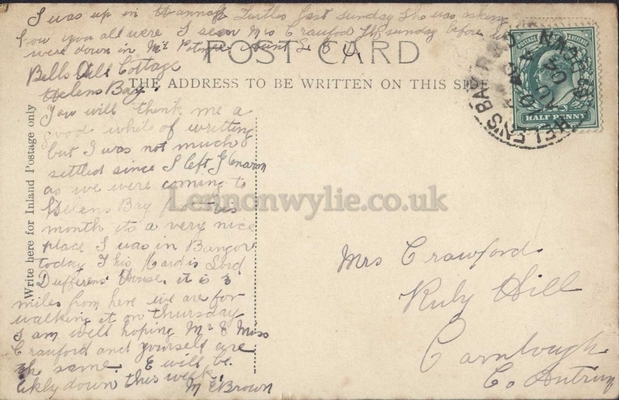 I was up in Hannah Turtles last Sunday She was asking
how you all were I seen Mrs Crawford Th sunday before we
were down in Mr
POST CARD
THE ADDRESS TO BE WRITTEN ON THIS SIDE
HALF PENNY
HELEN'S BAY
Write here for Inland Postage only
Bells Hill Cottage
Helens Bay
You will think me a
good while of writting
but I was not much
settled since I left Glenarm
as we were coming to
Helens Bay for this
month its a very nice
place I was in Bangor
today This Card is Lord
Dufferens House it is 3
miles from here we are for
walking it on thursday
I am well hoping Mr & Miss
Crawford and yourself are
the same E will be
likely down this week
M E Brown
Mrs Crawford
Ruby Hill
Carnlough
Co Antrim
Lennonwylie.co.uk